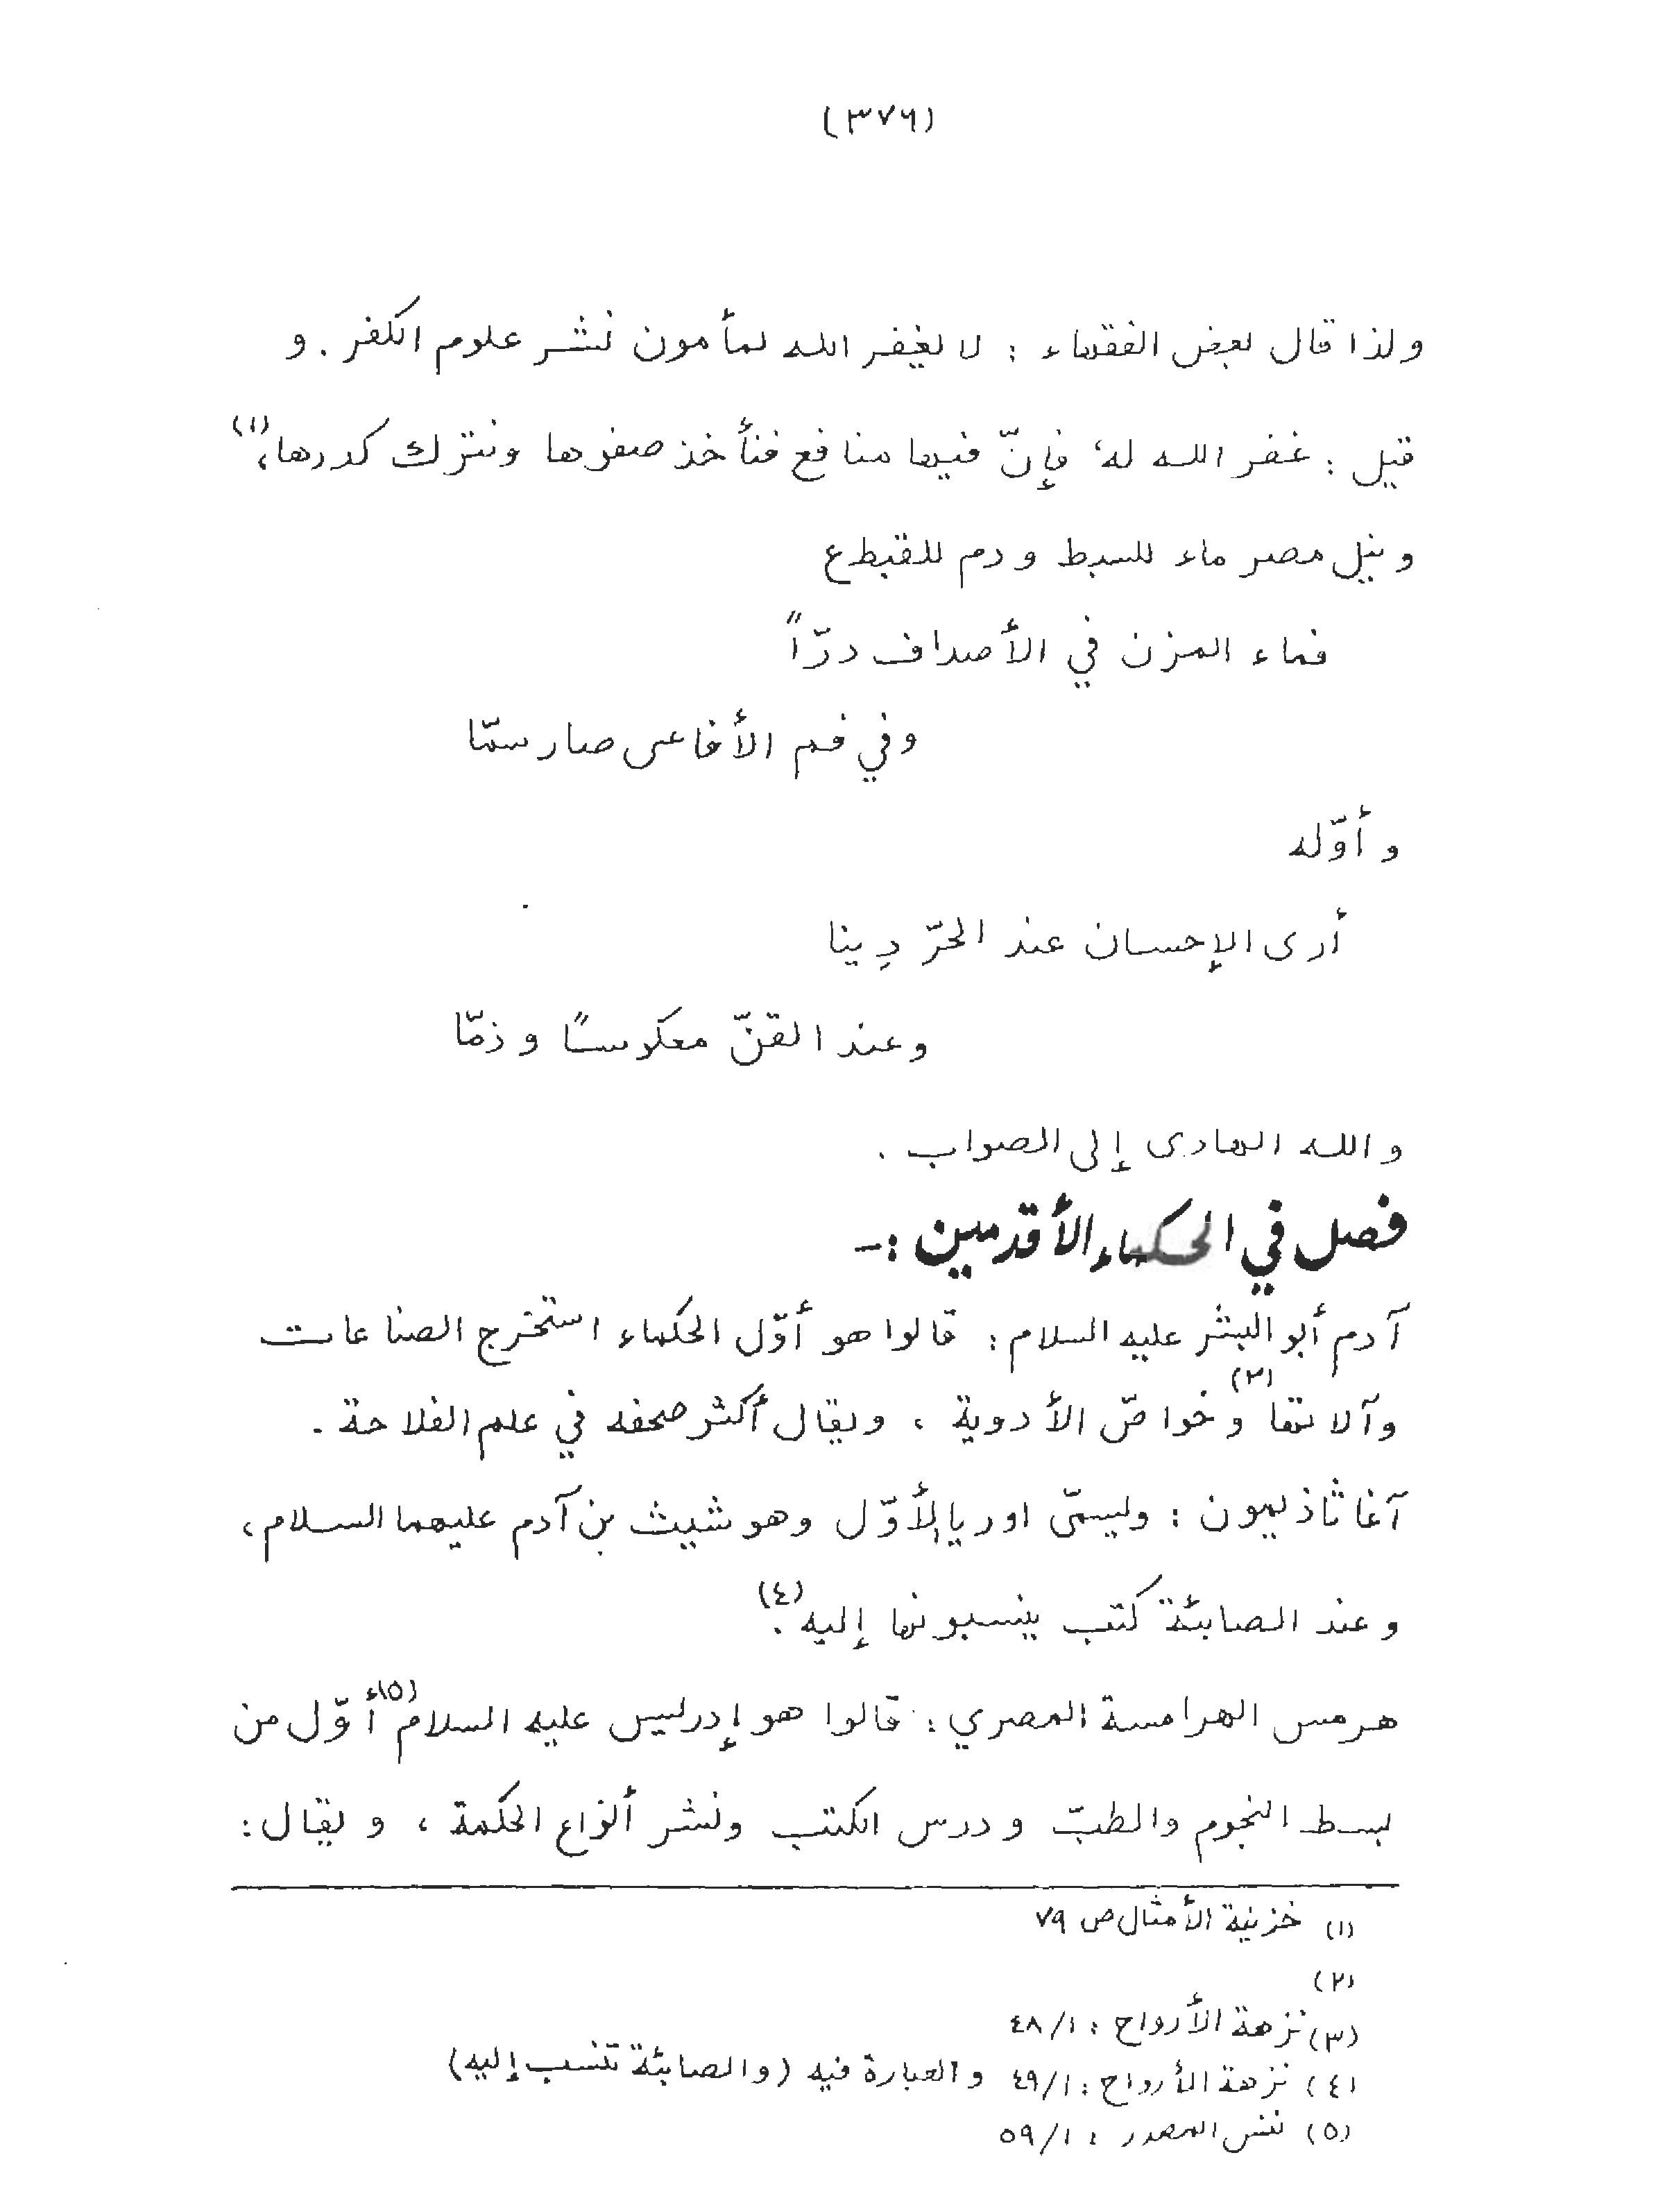 (٣٧٦)
ولذا قال بعض الفقهاء : لا يغفر الله لمأمون نشر علوم الكفر . و
قيل : غفر الله له، فإنّ فيها منافع فنأخذ صفوها ونترك كدرها،(١)
ونيل مصر ماء للسبط ودم للقبط ع
فماء المزن في الأصداف درّاً
وفي فم الأفاعى صار سمّا
وأوّله
أرى الإحسان عند الحرّ دِينا
وعند القنّ معكوسًا وذمّا
والله الهادى إلى الصواب .
فصل في الحكماء الأقدمين :ـ
آدم أبو البشر عليه السلام : قالوا هو أوّل الحكماء استخرج الصناعات
وآلاتها(٢) وخواصّ الأدوية ، ويقال أكثر صحفه في علم الفلاحة .
آغاثاذيمون : ويسمّى اوريا الأوّل وهو شيث بن آدم عليهما السلام ،
وعند الصابئة كتب ينسبونها إليه .(٤)
هرمس الهرامسة المصري : قالوا هو إدريس عليه السلام(٥) أوّل من
بسط النجوم والطبّ ودرس الكتب ونشر أنواع الحكمة ، ويقال :
(١) خزينة الأمثال ص ٧٩
(٢)
(٣) نزهة الأرواح : ١/٤٨
(٤) نزهة الأرواح : ١/٤٩ والعبارة فيه (والصابئة تنسب إليه)
(٥) نفس المصدر : ١/٥٩